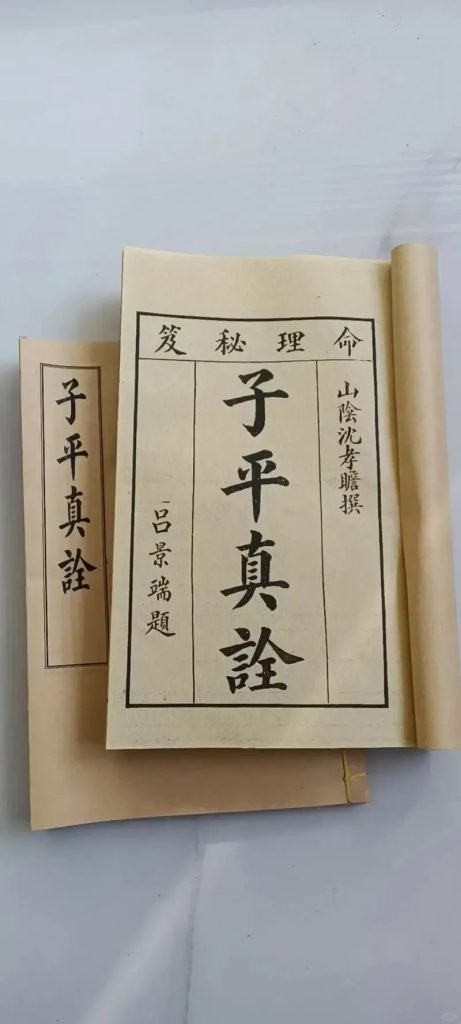 命理秘笈
山陰沈孝瞻撰
子平真詮
呂景端題
子平真詮